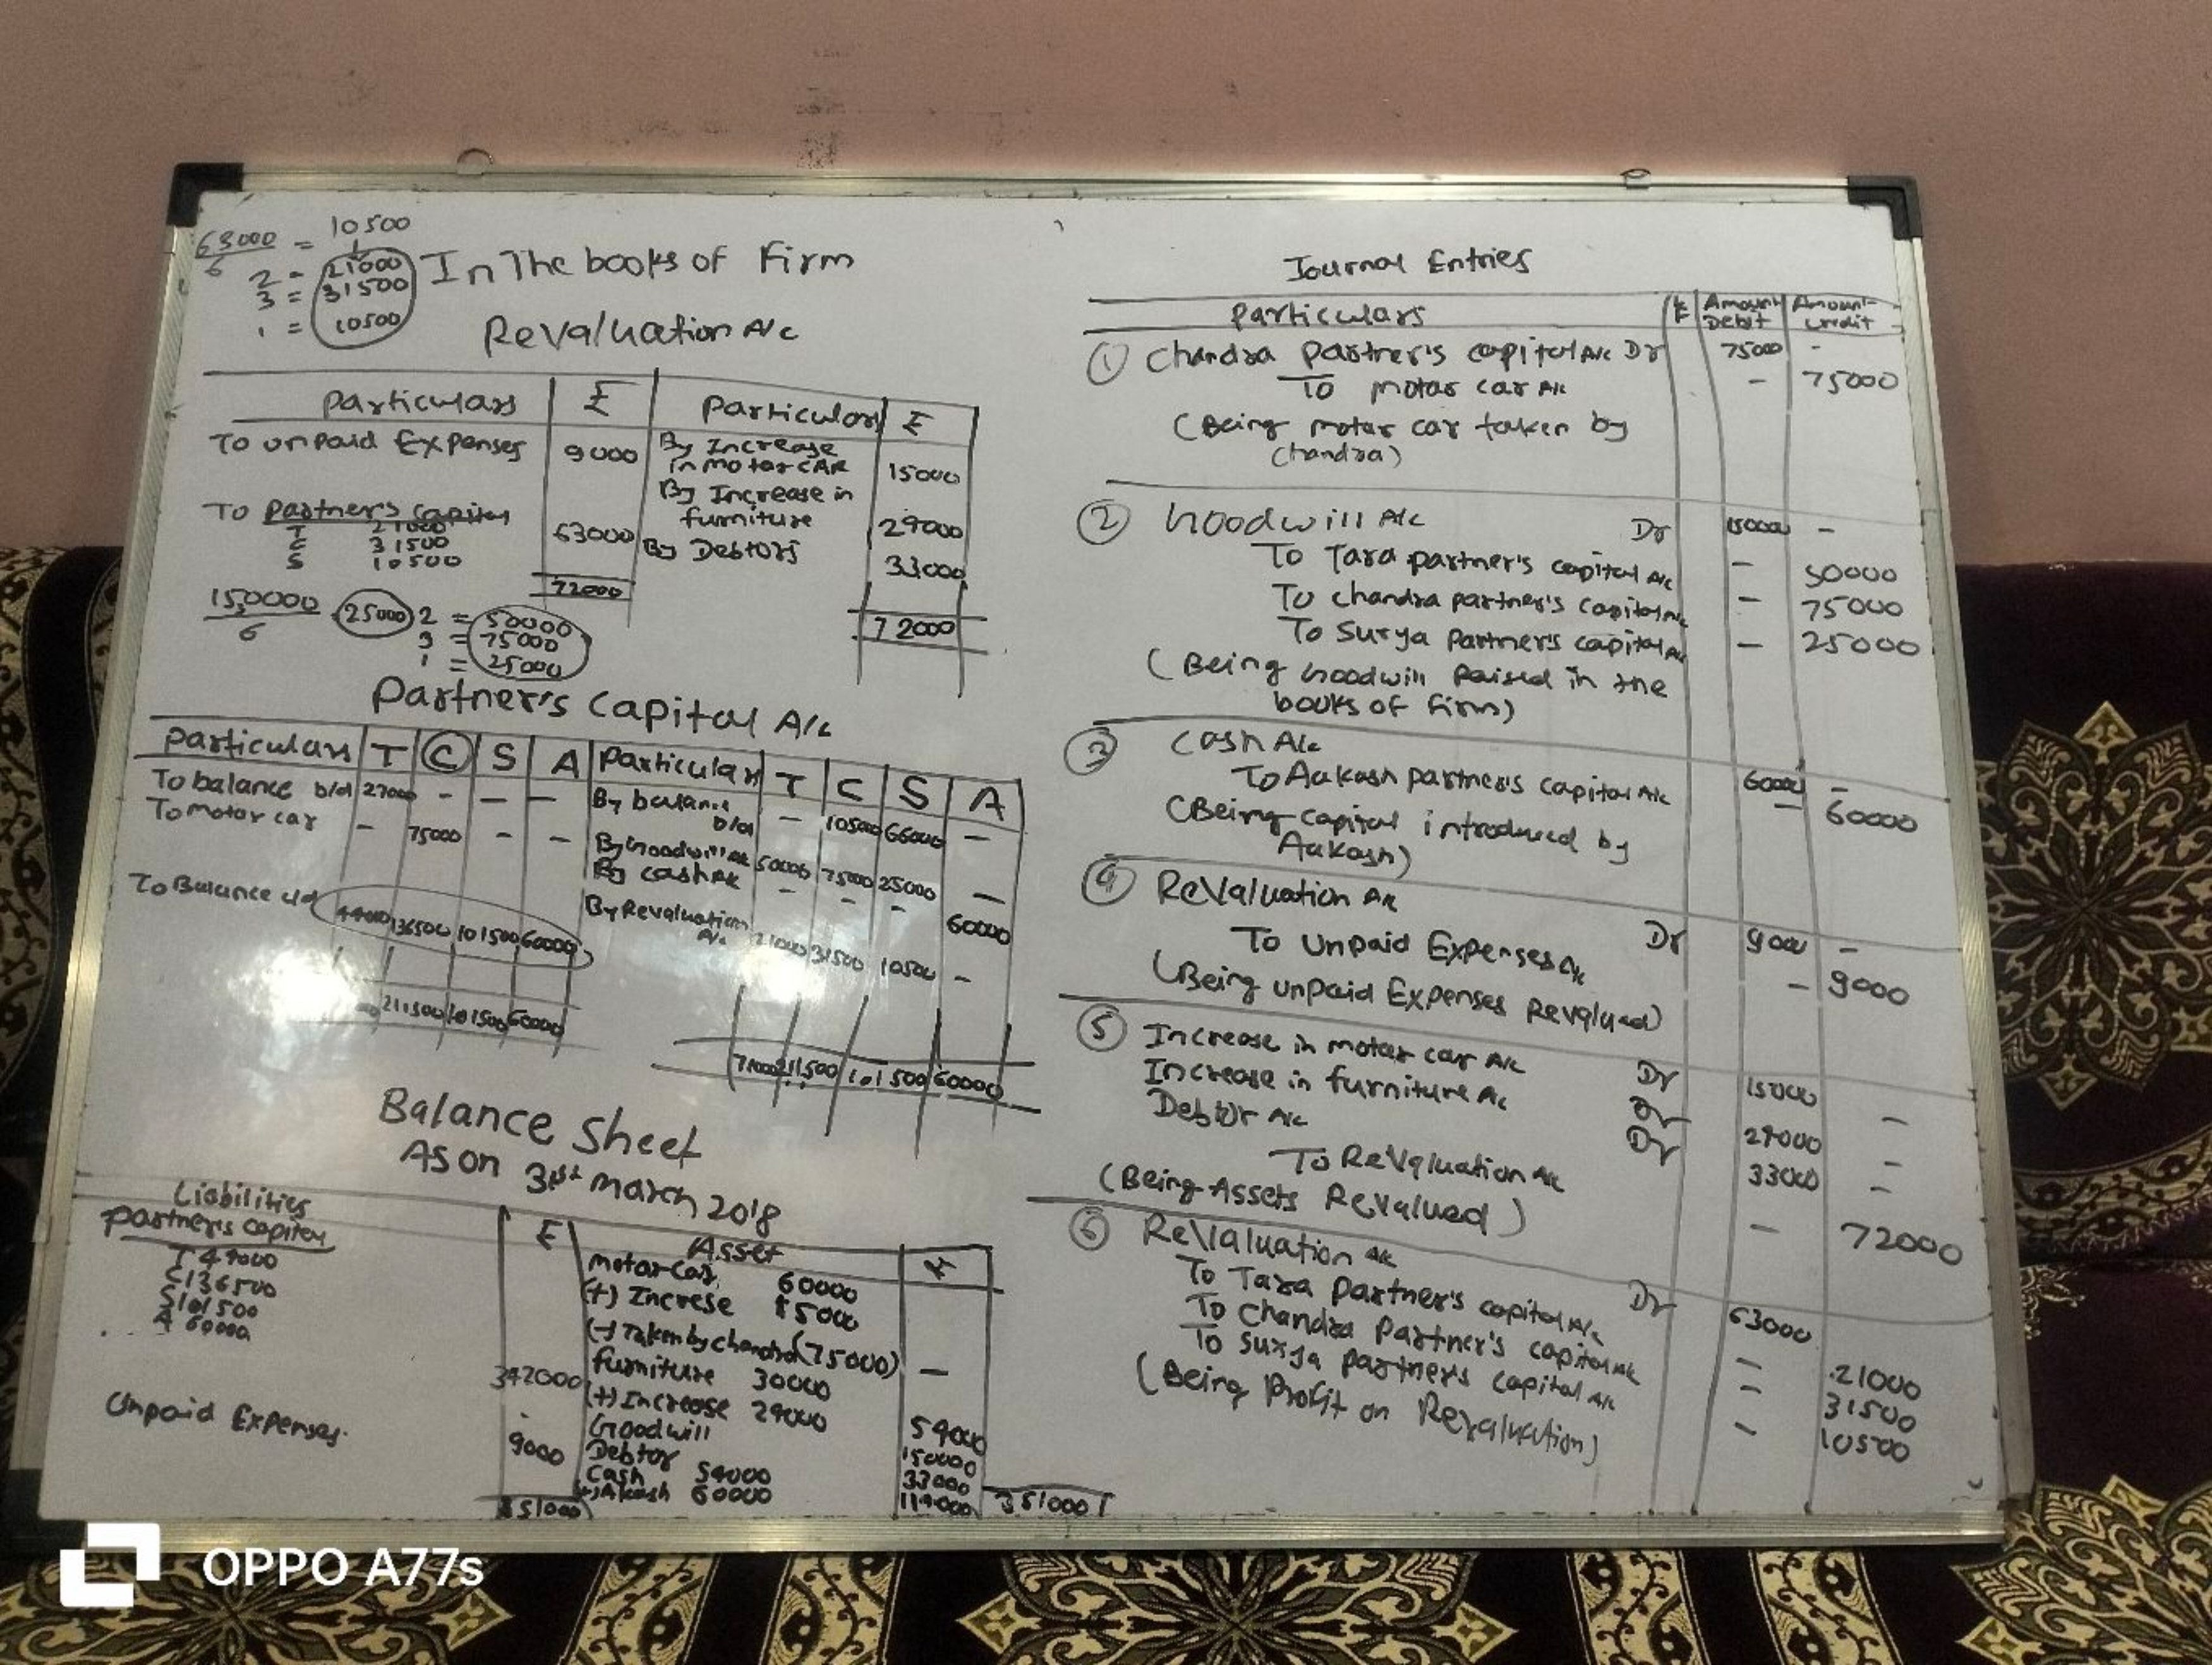 63000 = 10500
6 1
2 = 21000
3 = 31500
1 = 10500
In The books of Firm
Revaluation A/c
Particulars ₤ Particulars ₤
To unpaid Expenses 9000 By Increase
in motor CAR 15000
By Increase in
furniture 29000
To Partner's Capital
T 21000
C 31500 63000 By Debtors 33000
S 10500
72000 72000
150000 25000 2 = 50000
6 3 = 75000
1 = 25000
Partner's Capital A/c
Particulars T C S A Particulars T C S A
To balance b/d 27000 - - - By balance
b/d - 105000 66000 -
To Motor car - 75000 - - By Goodwill A/c 50000 75000 25000 -
By cash A/c - - - 60000
To Balance c/d 44000 136500 101500 60000 By Revaluation
A/c 21000 31500 10500 -
211500 101500 60000 71000 211500 101500 60000
Balance Sheet
As on 31st March 2018
Liabilities ₤ Asset ₤
Partner's Capital
T 44000
C 136500
S 101500
A 60000
342000
Unpaid Expenses. 9000
351000
Motor Car 60000
(+) Increse 15000
(-) Taken by chandra (75000) -
furniture 30000
(+) Increase 29000 59000
Goodwill 150000
Debtor 33000
Cash 59000
(+) Akash 60000 119000
351000
Journal Entries
Particulars LF Amount Debit Amount Credit
① Chandra Partner's capital A/c Dr 75000 -
To motar car A/c - 75000
(Being motar car taken by
Chandra)
② Goodwill A/c Dr 150000 -
To Tara partner's capital A/c - 50000
To chandra partner's Capital A/c - 75000
To Surya Partner's capital A/c - 25000
(Being Goodwill Raised in the
books of firm)
③ Cash A/c 60000 -
To Aakash partner's capital A/c - 60000
(Being capital introduced by
Aakash)
④ Revaluation A/c Dr 9000 -
To Unpaid Expenses A/c - 9000
(Being unpaid Expenses Revalued)
⑤ Increase in motar car A/c Dr 15000 -
Increase in furniture A/c Dr 29000 -
Debtor A/c Dr 33000 -
To Revaluation A/c - 72000
(Being Assets Revalued)
⑥ Revaluation A/c Dr 63000
To Tara Partner's capital A/c - 21000
To Chandra Partner's capital A/c - 31500
To Surya Partner's capital A/c - 10500
(Being Profit on Revaluation)
OPPO A77s